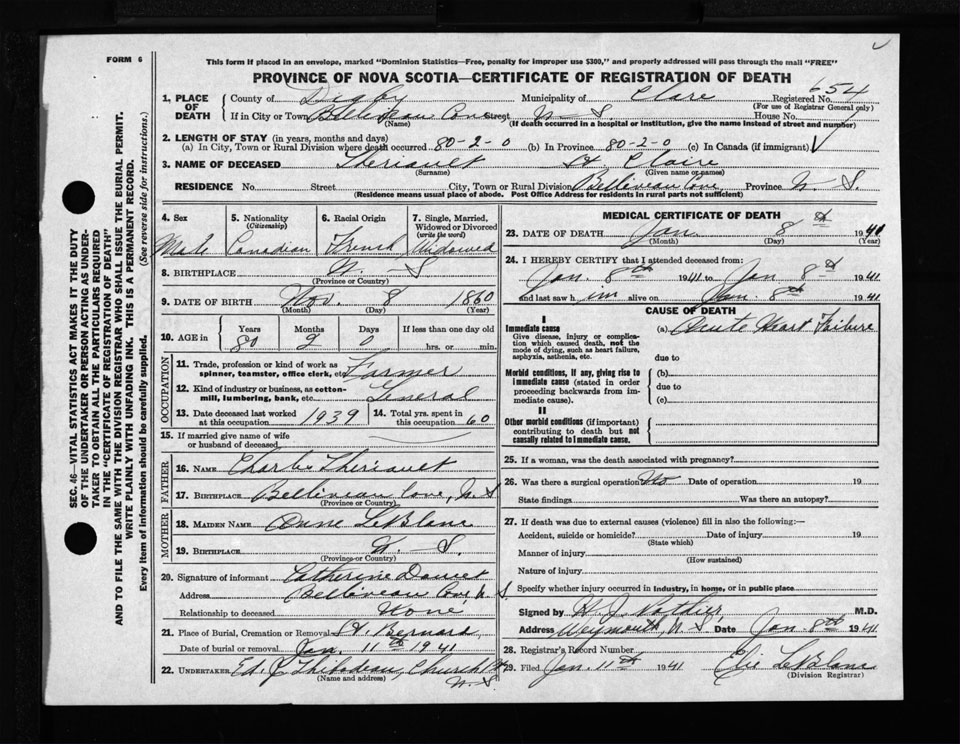 FORM 6
This form if placed in an envelope, marked "Dominion Statistics—Free, penalty for improper use $300," and properly addressed will pass through the mail "FREE"
PROVINCE OF NOVA SCOTIA—CERTIFICATE OF REGISTRATION OF DEATH
1. PLACE OF DEATH County of Digby Municipality of Clare Registered No. 654
(For use of Registrar General only)
If in City or Town Belliveau Cove Street N. S. House No.
(Name) (If death occurred in a hospital or institution, give the name instead of street and number)
2. LENGTH OF STAY (in years, months and days)
(a) In City, Town or Rural Division where death occurred 80-2-0 (b) In Province 80-2-0 (c) In Canada (if immigrant)
3. NAME OF DECEASED Theriault St. Claire
(Surname) (Given name or names)
RESIDENCE No. Street City, Town or Rural Division Belliveau Cove, Province N. S.
(Residence means usual place of abode. Post Office Address for residents in rural parts not sufficient)
SEC. 46—VITAL STATISTICS ACT MAKES IT THE DUTY
OF THE UNDERTAKER OR PERSON ACTING AS UNDER-
TAKER TO OBTAIN ALL THE PARTICULARS REQUIRED
IN THE "CERTIFICATE OF REGISTRATION OF DEATH"
AND TO FILE THE SAME WITH THE DIVISION REGISTRAR WHO SHALL ISSUE THE BURIAL PERMIT.
WRITE PLAINLY WITH UNFADING INK. THIS IS A PERMANENT RECORD.
Every item of information should be carefully supplied. (See reverse side for instructions.)
4. Sex Male
5. Nationality (Citizenship) Canadian
6. Racial Origin French
7. Single, Married, Widowed or Divorced (write the word) Widowed
8. BIRTHPLACE N. S.
(Province or Country)
9. DATE OF BIRTH Nov. 8 1860
(Month) (Day) (Year)
10. AGE in Years 80 Months 2 Days 0 If less than one day
hrs. or min.
OCCUPATION
11. Trade, profession or kind of work as spinner, teamster, office clerk, etc. Farmer
12. Kind of industry or business, as cotton-mill, lumbering, bank, etc. General
13. Date deceased last worked at this occupation 1939 14. Total yrs. spent in this occupation 60
15. If married give name of wife or husband of deceased
FATHER
16. NAME Charles Theriault
17. BIRTHPLACE Belliveau Cove, N. S.
(Province or Country)
MOTHER
18. MAIDEN NAME Anne LeBlanc
19. BIRTHPLACE N. S.
(Province or Country)
20. Signature of informant Catherine Doucet
Address Belliveau Cove N. S.
Relationship to deceased None
21. Place of Burial, Cremation or Removal St. Bernard
Date of burial or removal Jan. 11th 1941
22. UNDERTAKER Ed. J. Thibodeau, Church Pt.
(Name and address) N. S
MEDICAL CERTIFICATE OF DEATH
23. DATE OF DEATH Jan. 8th 1940
(Month) (Day) (Year)
24. I HEREBY CERTIFY that I attended deceased from:
Jan. 8th 1941 to Jan 8th 1941
and last saw him alive on Jan. 8th 1941
CAUSE OF DEATH
I
Immediate cause (a) Acute Heart Failure
Give disease, injury or complica-
tion which caused death, not the
mode of dying, such as heart failure,
asphyxia, asthenia, etc. due to
Morbid conditions, if any, giving rise to (b)
immediate cause (stated in order due to
proceeding backwards from im-
mediate cause). (c)
II
Other morbid conditions (if important)
contributing to death but not
causally related to immediate cause.
25. If a woman, was the death associated with pregnancy?
26. Was there a surgical operation No Date of operation 19
State findings Was there an autopsy?
27. If death was due to external causes (violence) fill in also the following:—
Accident, suicide or homicide? Date of injury 19
(State which)
Manner of injury
(How sustained)
Nature of injury
Specify whether injury occurred in industry, in home, or in public place
Signed by H. J. Pothier, M.D.
Address Weymouth, N. S. Date Jan. 8th 1941
28. Registrar's Record Number
29. Filed Jan. 11th 1941 Elie LeBlanc
(Division Registrar)